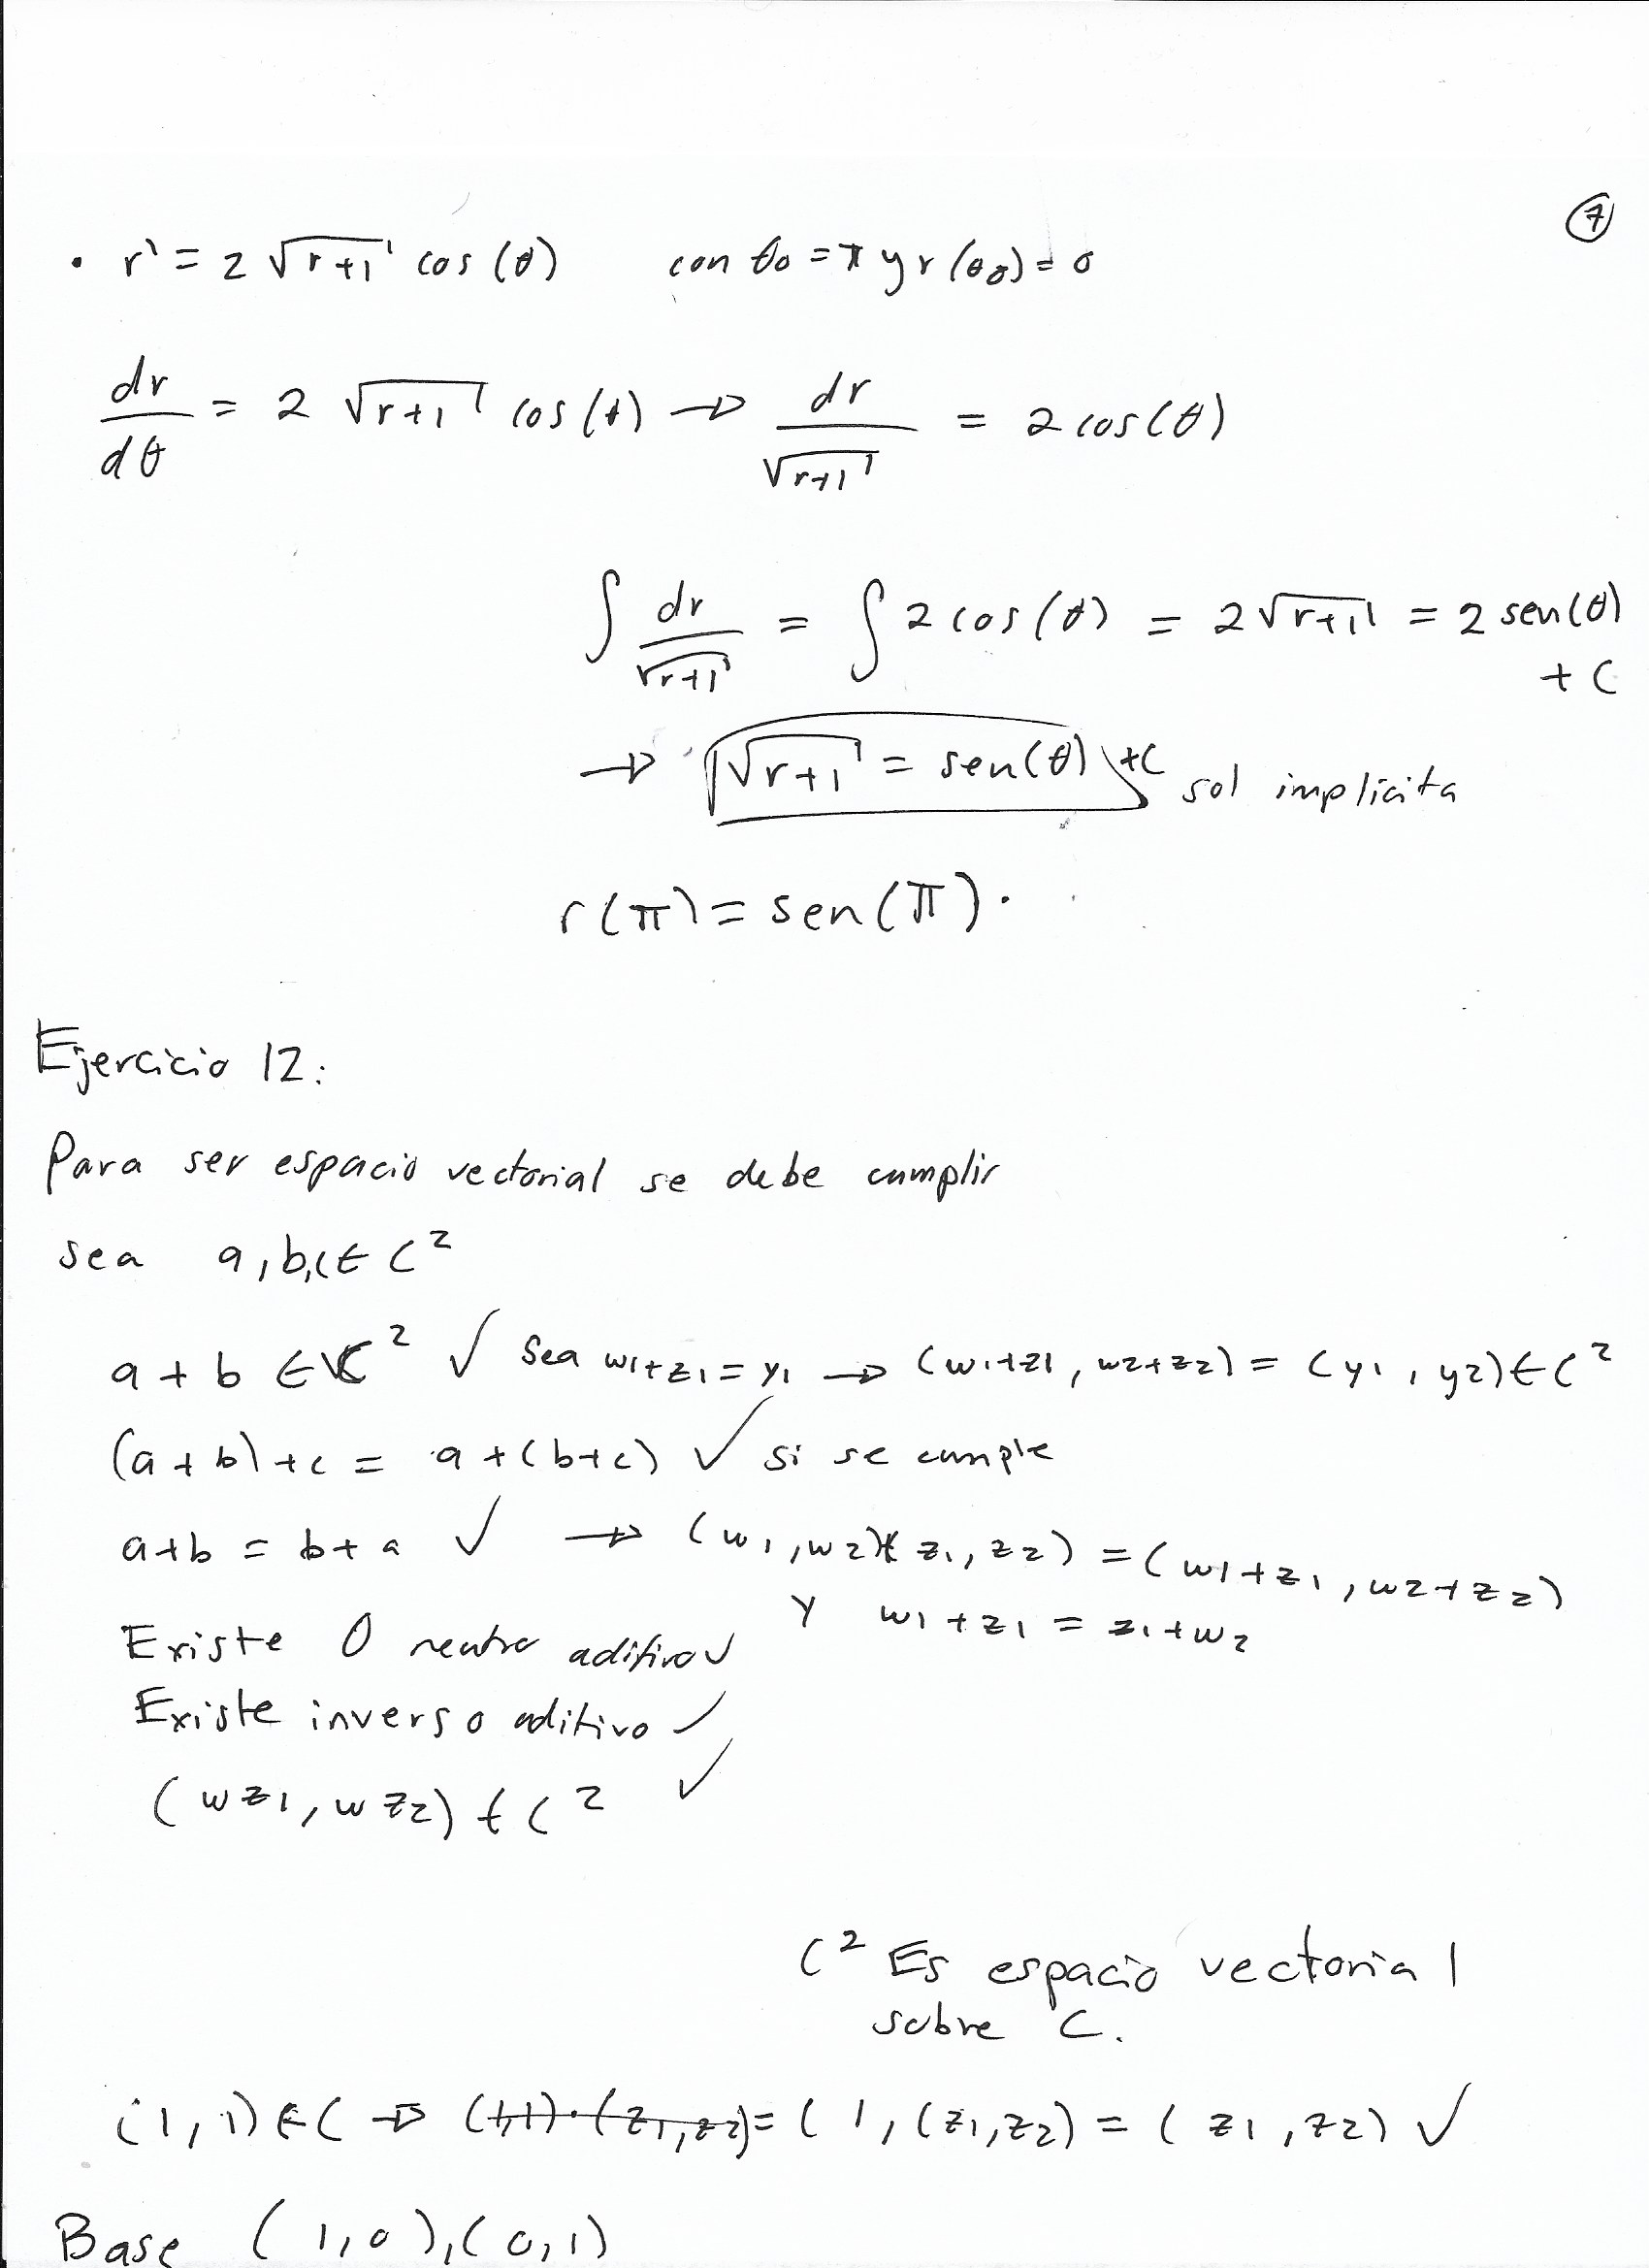 7
• r' = 2 √(r+1) cos(θ) con θ0 = π y r(θ0) = 0
dr/dθ = 2 √(r+1) cos(θ) → dr/√(r+1) = 2 cos(θ)
∫ dr/√(r+1) = ∫ 2 cos(θ) = 2√(r+1) = 2 sen(θ)
+ C
→ √(r+1) = sen(θ) + C sol implicita
r(π) = sen(π).
Ejercicio 12:
Para ser espacio vectorial se debe cumplir
sea a,b,c ∈ C²
a + b ∈ C² ✓ Sea w1+z1 = y1 → (w1+z1, w2+z2) = (y1, y2) ∈ C²
(a + b) + c = a + (b+c) ✓ si se cumple
a+b = b+a ✓ → (w1, w2)+(z1, z2) = (w1+z1, w2+z2)
y w1+z1 = z1+w2
Existe 0 neutro aditivo ✓
Existe inverso aditivo ✓
(wz1, wz2) ∈ C² ✓
C² Es espacio vectorial
sobre C.
(1,1) ∈ C → (1,1)·(z1,z2) = (1,(z1,z2) = (z1, z2) ✓
Base (1,0),(0,1)